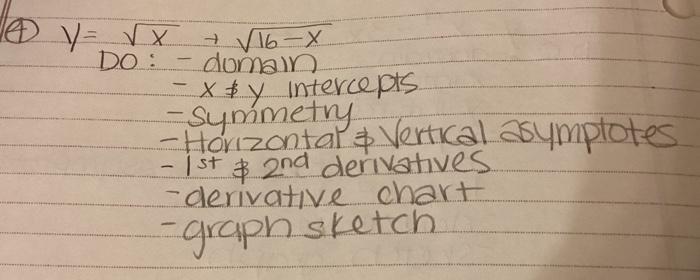 ④ y = √x + √16-x
DO: - domain
- x & y intercepts
- Symmetry
- Horizontal & Vertical asymptotes
- 1st & 2nd derivatives
- derivative chart
- graph sketch